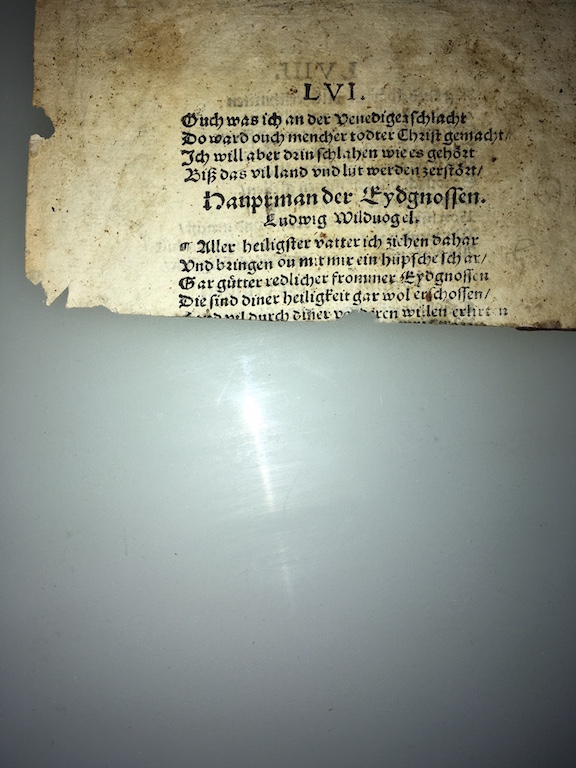 LVI.
Ouch was ich an der Venediger schlacht
Do ward ouch mencher todter Christ gemacht/
Ich will aber drin schlahen wie es gehört
Biß das vil land vnd lüt werden zerstört/
Hauptman der Eydgnossen.
Ludwig Wilduogel.
¶ Aller heiligster vatter ich ziehen dahar
Vnd bringen ouch mit mir ein hüpsche schar/
Gar gütter redlicher frommer Eydgnossen
Die sind diner heiligkeit gar wol erschossen/
vil durch diner willen erlitten